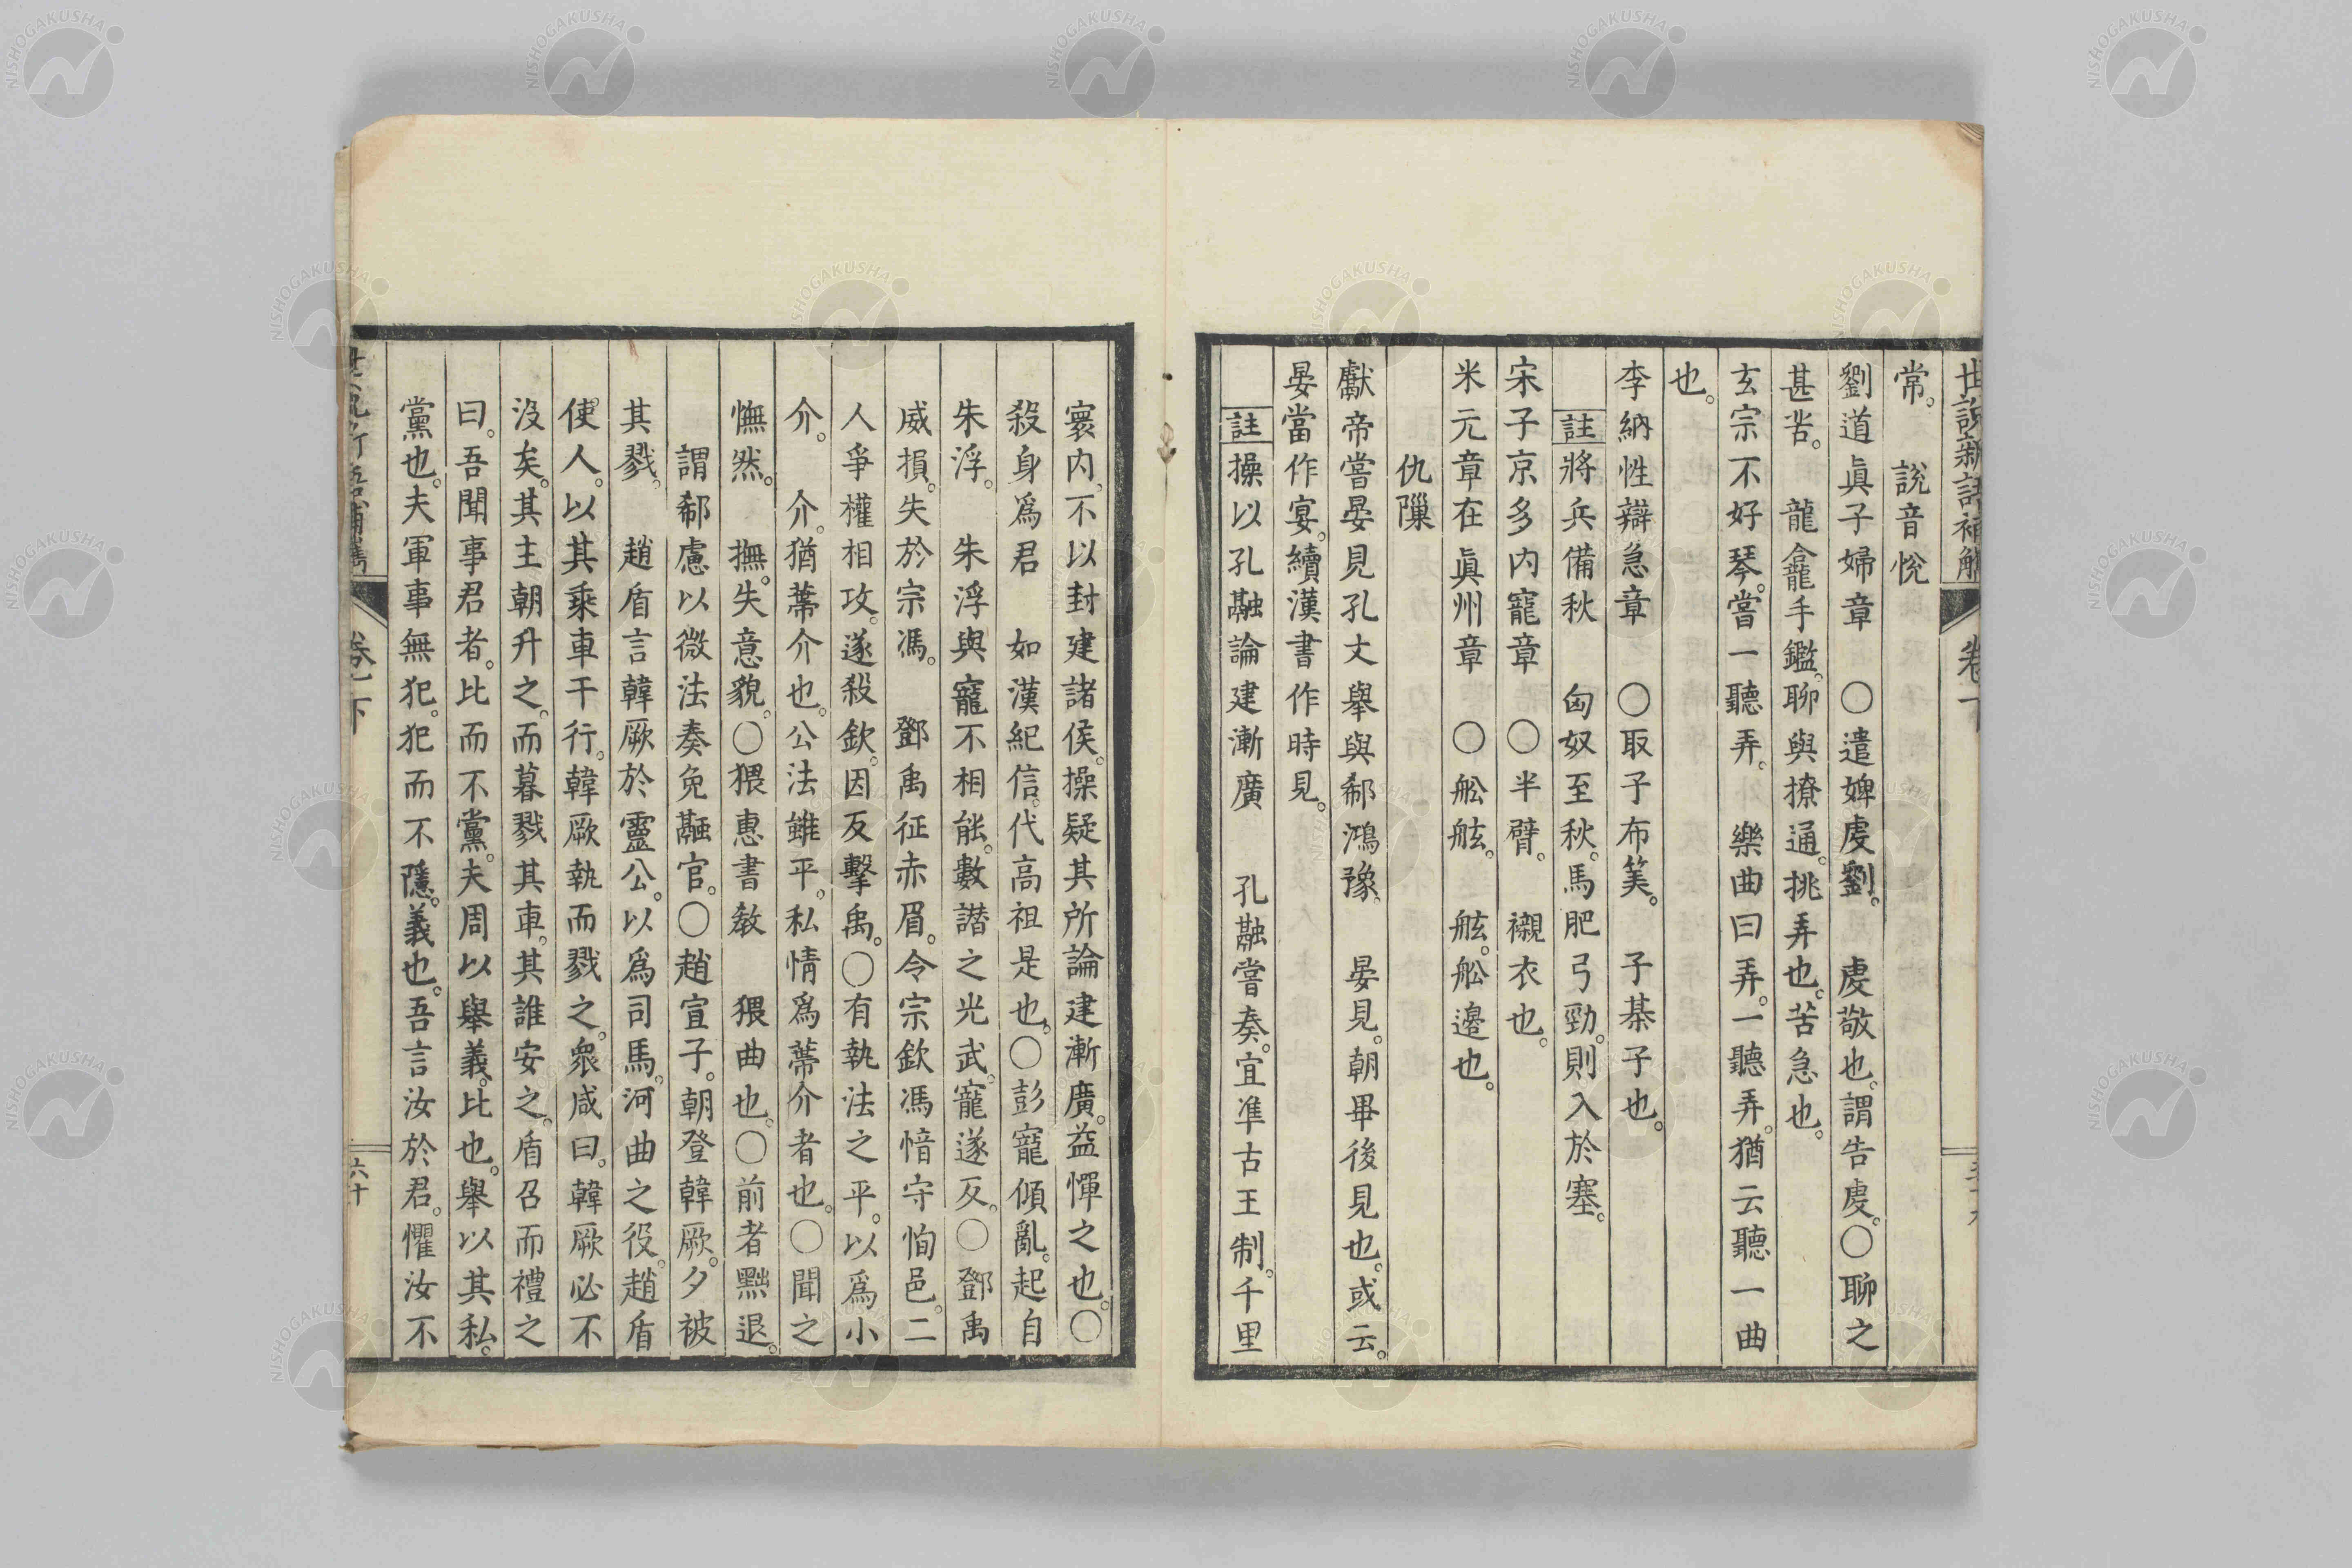 世說新語補觿 卷下
常。 說音悅
劉道眞子婦章 〇遣婢虔劉。 虔敬也。謂告虔。〇聊之
甚苦。 龍龕手鑑。聊與撩通。挑弄也。苦急也。
玄宗不好琴。嘗一聽弄。 樂曲曰弄。一聽弄。猶云聽一曲
也。
李納性辯急章 〇取子布筭。 子棊子也。
註將兵備秋 匈奴至秋。馬肥弓勁。則入於塞。
宋子京多內寵章 〇半臂。 襯衣也。
米元章在眞州章 〇舩舷。 舷。舩邊也。
仇隟
獻帝嘗晏見孔文舉與郗鴻豫。 晏見。朝畢後見也。或云。
晏當作宴。續漢書作時見。
註操以孔融論建漸廣 孔融嘗奏。宜准古王制。千里
寰內。不以封建諸侯。操疑其所論建漸廣。益憚之也。〇
殺身爲君 如漢紀信。代高祖是也。〇彭寵傾亂。起自
朱浮。 朱浮與寵不相能。數譖之光武。寵遂反。〇鄧禹
威損。失於宗馮。 鄧禹征赤眉。令宗欽馮愔守恂邑。二
人爭權相攻。遂殺欽。因反擊禹。〇有執法之平。以爲小
介。 介。猶蔕介也。公法雖平。私情爲蔕介者也。〇聞之
憮然。 撫。失意貌。〇猥惠書敎 猥曲也。〇前者黜退。
謂郗慮以微法奏免融官。〇趙宣子。朝登韓厥。夕被
其戮。 趙盾言韓厥於靈公。以爲司馬。河曲之役。趙盾
使人。以其乘車干行。韓厥執而戮之。衆咸曰。韓厥必不
沒矣。其主朝升之。而暮戮其車。其誰安之。盾召而禮之
曰。吾聞事君者。比而不黨。夫周以舉義。比也。舉以其私。
黨也。夫軍事無犯。犯而不隱。義也。吾言汝於君。懼汝不
世說新語補觿 卷下 六十